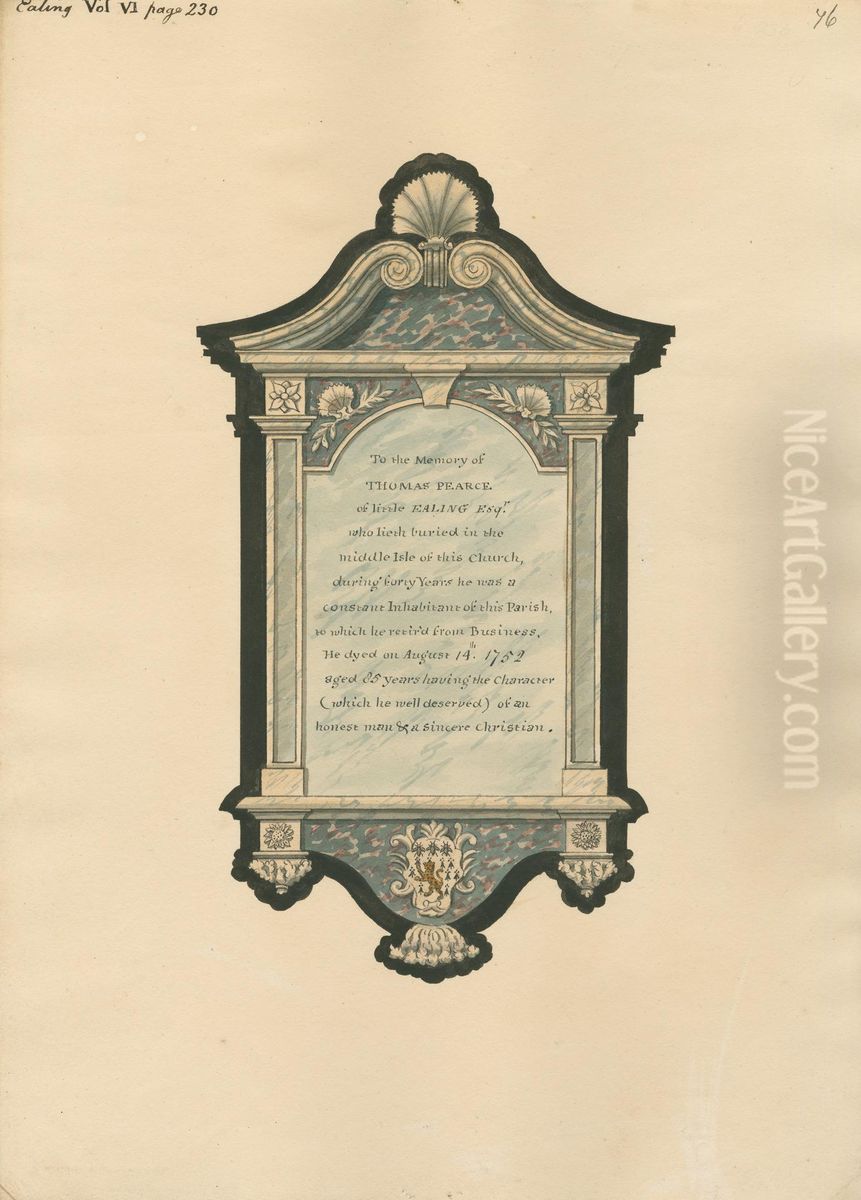 Ealing Vol VI page 230
76
To the Memory of
THOMAS PEARCE
of little EALING Esqr.
who lieth buried in the
middle Isle of this Church,
during forty Years he was a
constant Inhabitant of this Parish,
to which he retir'd from Business.
He dyed on August 14th. 1752
aged 85 years having the Character
(which he well deserved) of an
honest man & a sincere Christian.
NiceArtGallery.com